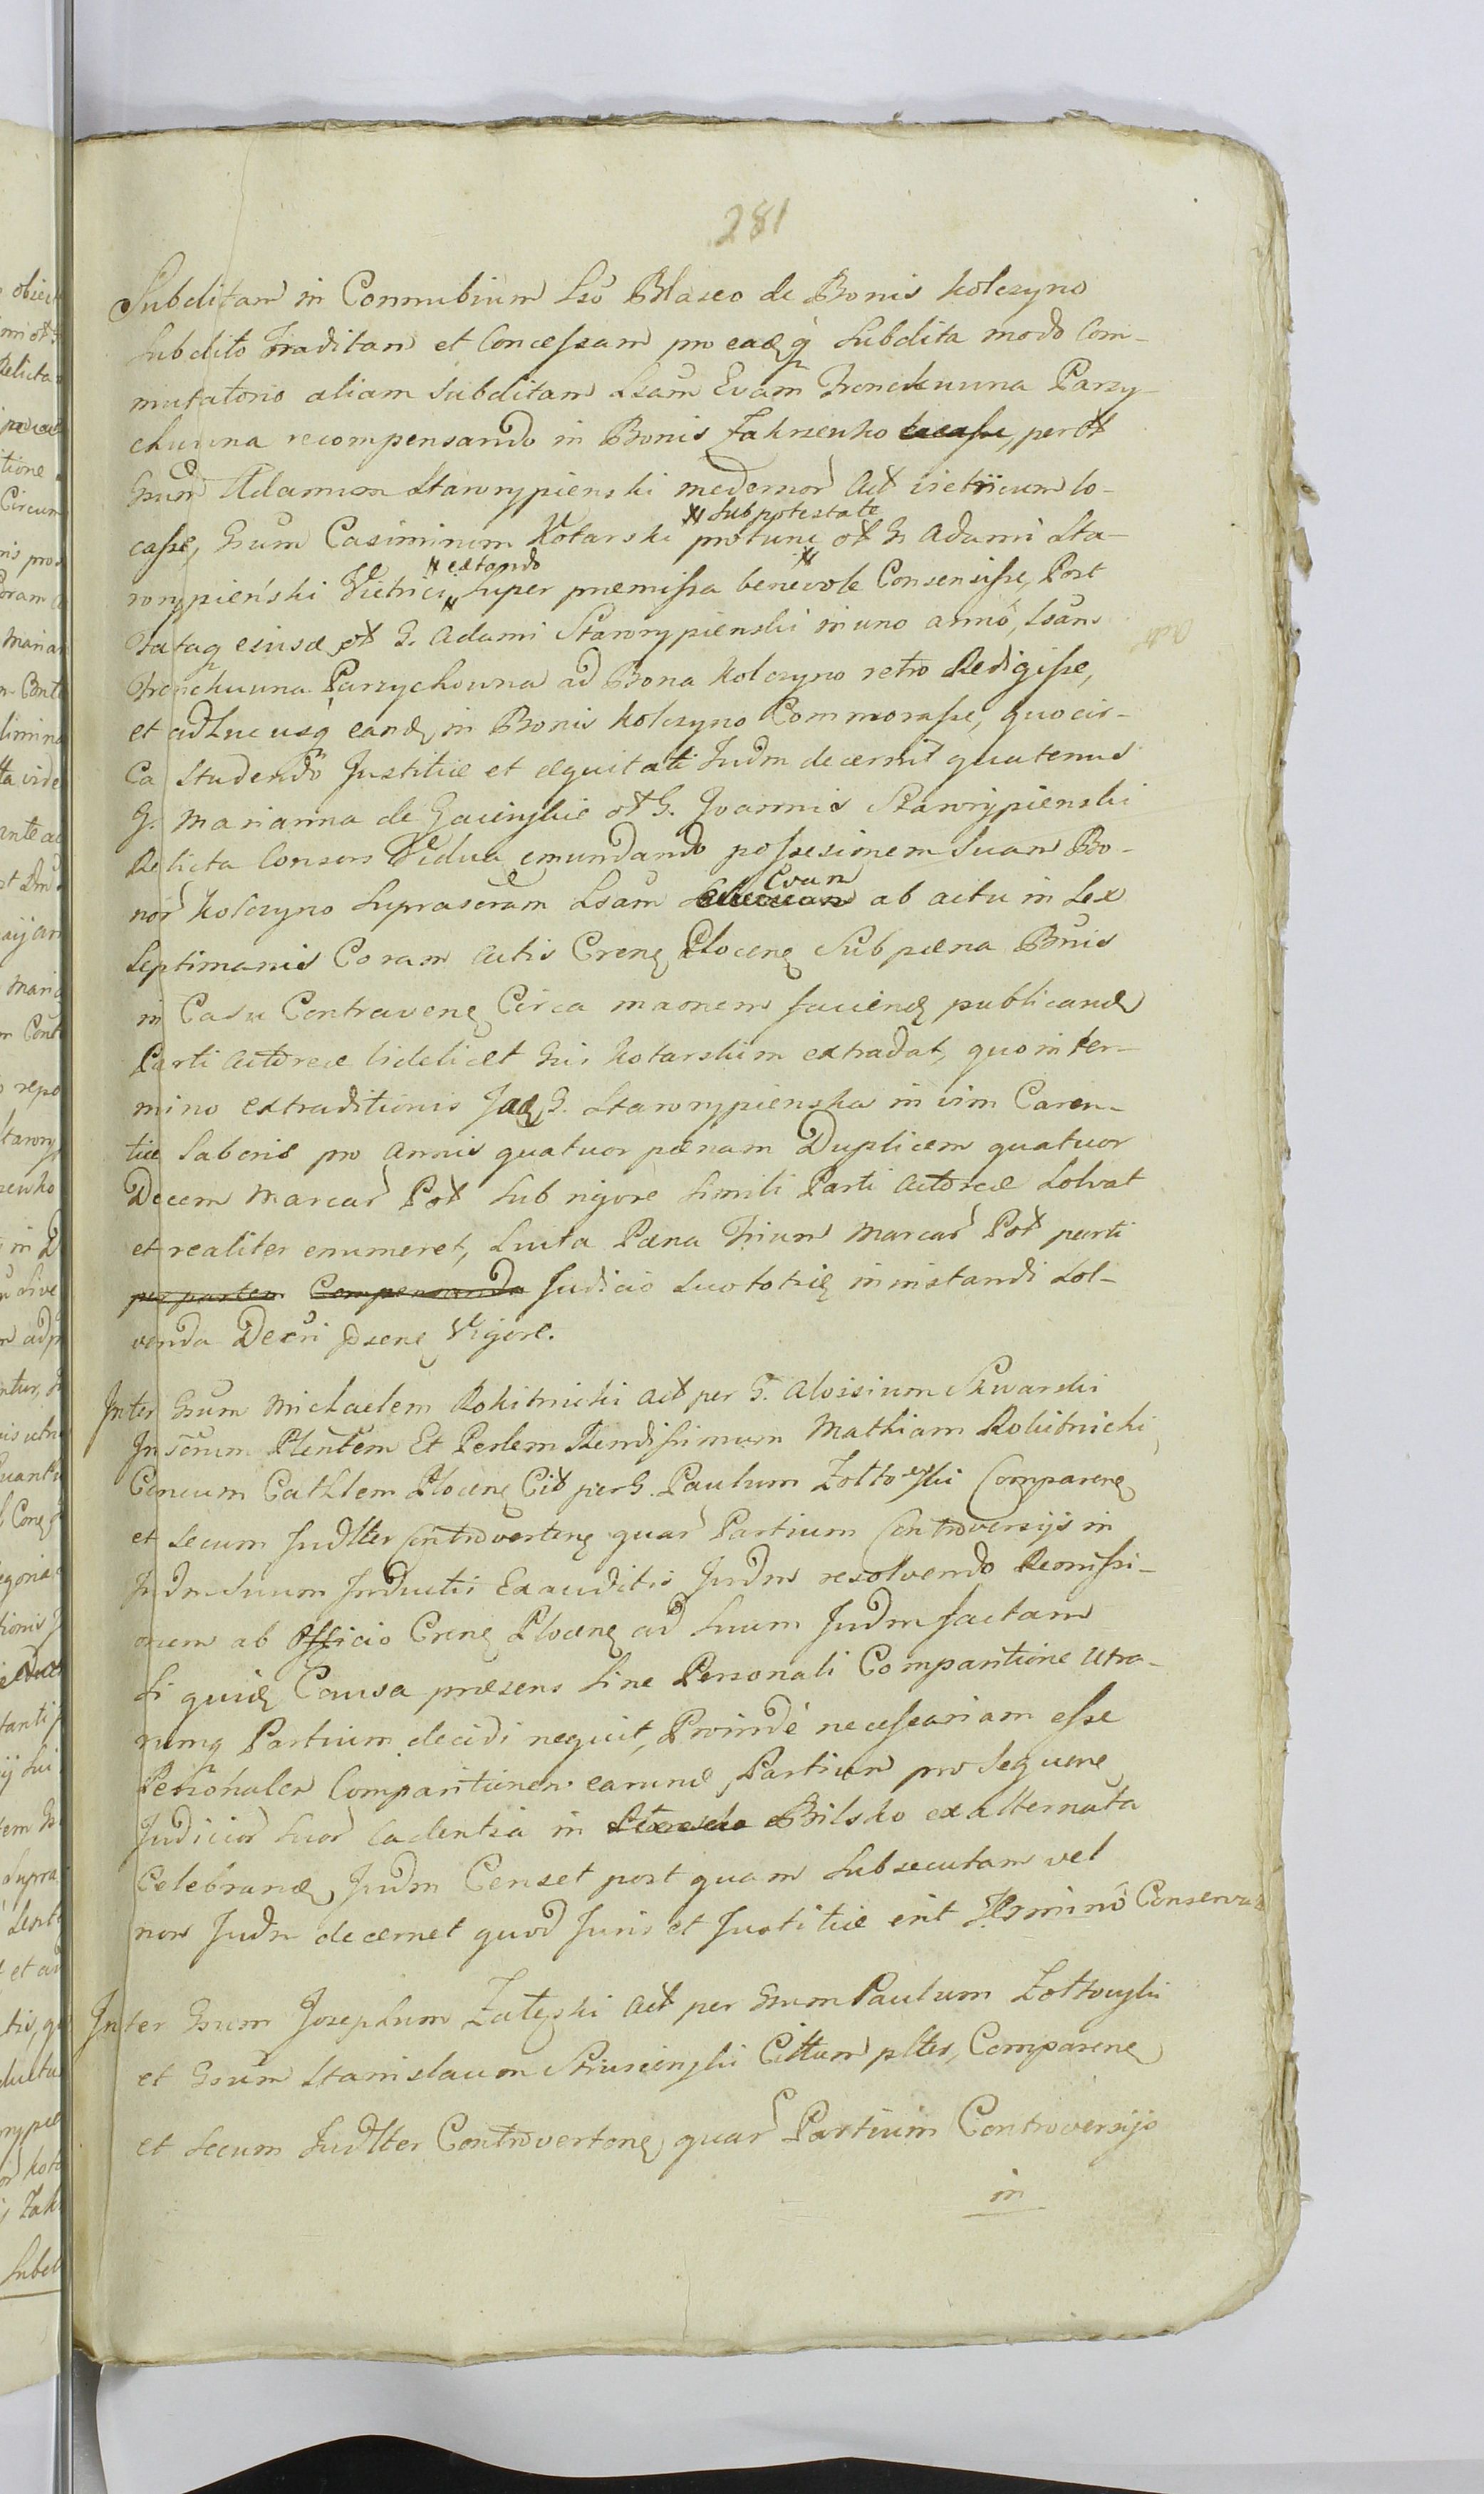 281
Subditam in Connubium Lso Blaseo de Bonis Kolczyno
Subdito Traditam et Concessam pro eadq Subdita modo Com-
mutatorio aliam Subditam Lsam Evam Fronckuwna Parzy-
chuwna recompensando in Bonis Zakrzenko locasse, per ol
Gsum Adamum Starorypienski medernor Act vietricum lo-
casse, Gsum Casimirum Kotarski protunc ol G Adami Sta-
# Sub potestate
rorypieński Vietrici Super præmissa benevole Consensisse, Post
# extando
Fataq eiusd ol G. Adami Starorypienski in uno anno, Lsam
Fronckuwna Parzychowna ad Bona Kolczyno retro Redigisse,
et adhucusq eand in Bonis Kolczyno Commorasse, quocir-
ca Studendo Justitiæ et æquitati Judm decernit quatenus
G. Marianna de ol G. Joannis Starorypienski
Relicta Consors Vidua emundando possesionem Suam Bo-
nor Kolczyno Suprascram Lsam Evam ab actu in Sex
Septimanis Coram Actis Cren Plocen Sub pæna Bnis
in Casu Contraven Circa maonem faciend publicand
Parti Actoreæ videlicet Gsis Kotarskim extradat, quo in ter-
mino extraditionis Jad G. Starorypienska in vim Caren-
tiæ Laboris pro Annis quatuor pænam Duplicem quatuor
Decem Marcar Pol Sub rigore Simili Parti Actoreæ Solvat
et realiter enumeret, Luita Pæna Trium Marcar Pol parti
per partem Compensanda Judicio Suo toties in instandi Sol-
venda Decri psen Vigore.
Inter Gsum Michaelem Rokitnicki Act per G. Aloisium Skwarski
Inscrum Plentem Et Perlem Rendissimum Mathiam Rokitnicki,
Cancum Cathlem Plocen Cit per G. Paulum Zoltowski Comparen
et Secum Judlter Controverten quar Partium Controversijs in
Judm Suum Inductis Exauditis Judm resolvendo Remissi-
onem ab Officio Cren Plocen ad Suum Judm factam
Si quid Causa præsens Sine Personali Comparitione Utra-
rumq Partium decidi nequit, Proindè necessariam esse
Personalem Comparitionem earund Partium pro Sequen
Judicior Suor Cadentia in Bilsko ex alternata
Celebrand Judm Censet post quam Subsecutam vel
non Judm decernet quod Juris et Justitiæ erit Termino Conservato
Inter Gsum Josephum Zaleski Act per Gsum Paulum Zoltowski
et Gsum Stanislaum Cittum plter, Comparen
et Secum Judlter Controverten quar Partium Controversijs
in